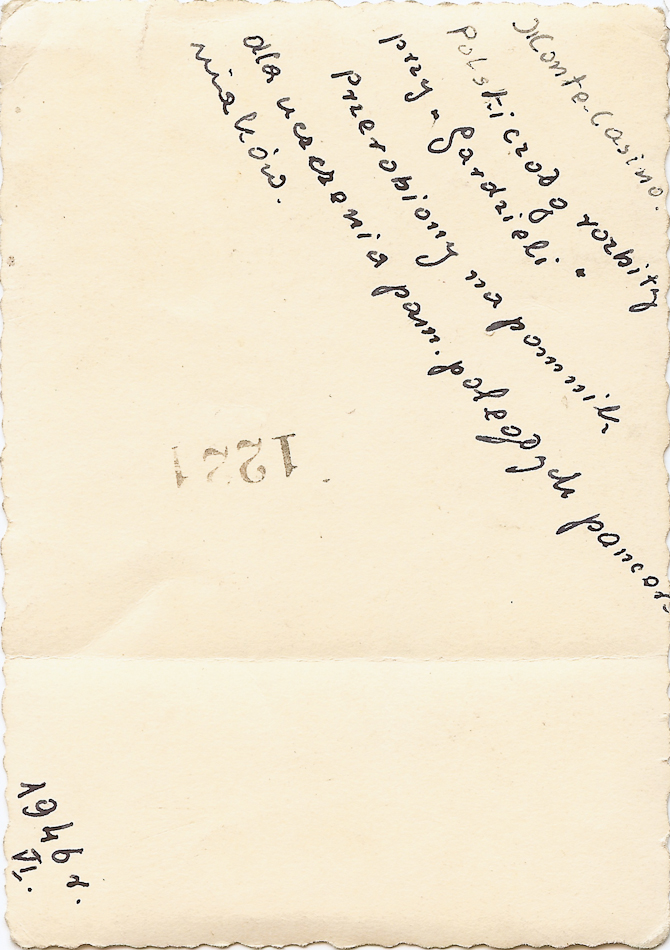 Monte-Casino.
Polski czołg rozbity
przy "Gardzieli"
przerobiony na pomnik
dla uczczenia pam. poległych pancer
niaków.
1221
1946 r.
VI.